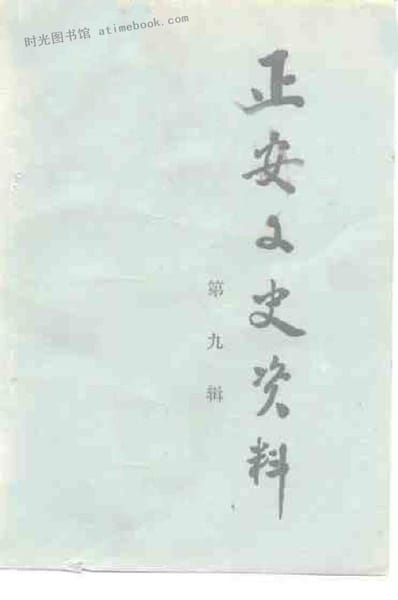 时光图书馆 atimebook.com
正安文史资料
第九辑